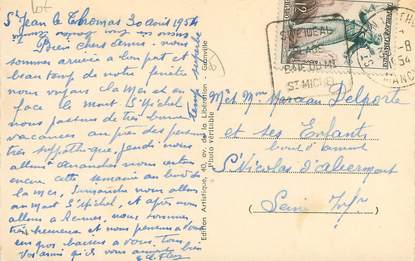 St Jean le Thomas 30 août 1954
Bien chers Amis - nous
sommes arrivés à bon port et
beau temps de notre fenêtre
nous voyons la mer et en
face le mont St Michel nous
passons de très bonnes
vacances au près des
très sympathique, jeudi nous
allons Avranches nous
encore cette semaine au bord de
la mer, Dimanche nous allons
au Mont St Michel, et après nous
allons à Rennes, nous sommes
très heureux et nous pensons à vous
bons baisers à vous, tous
Vos amis qui
temps superbe
Edition Artistique, 40, av. de la Libération - Granville
Photo véritable
12
PLAGE
BAIE DU Mt
ST MICHEL
1954
MANCHE
Mr et Mme Marceau Delporte
et ses Enfants
bout d'amont
St Nicolas d'aliermont
Seine Infre